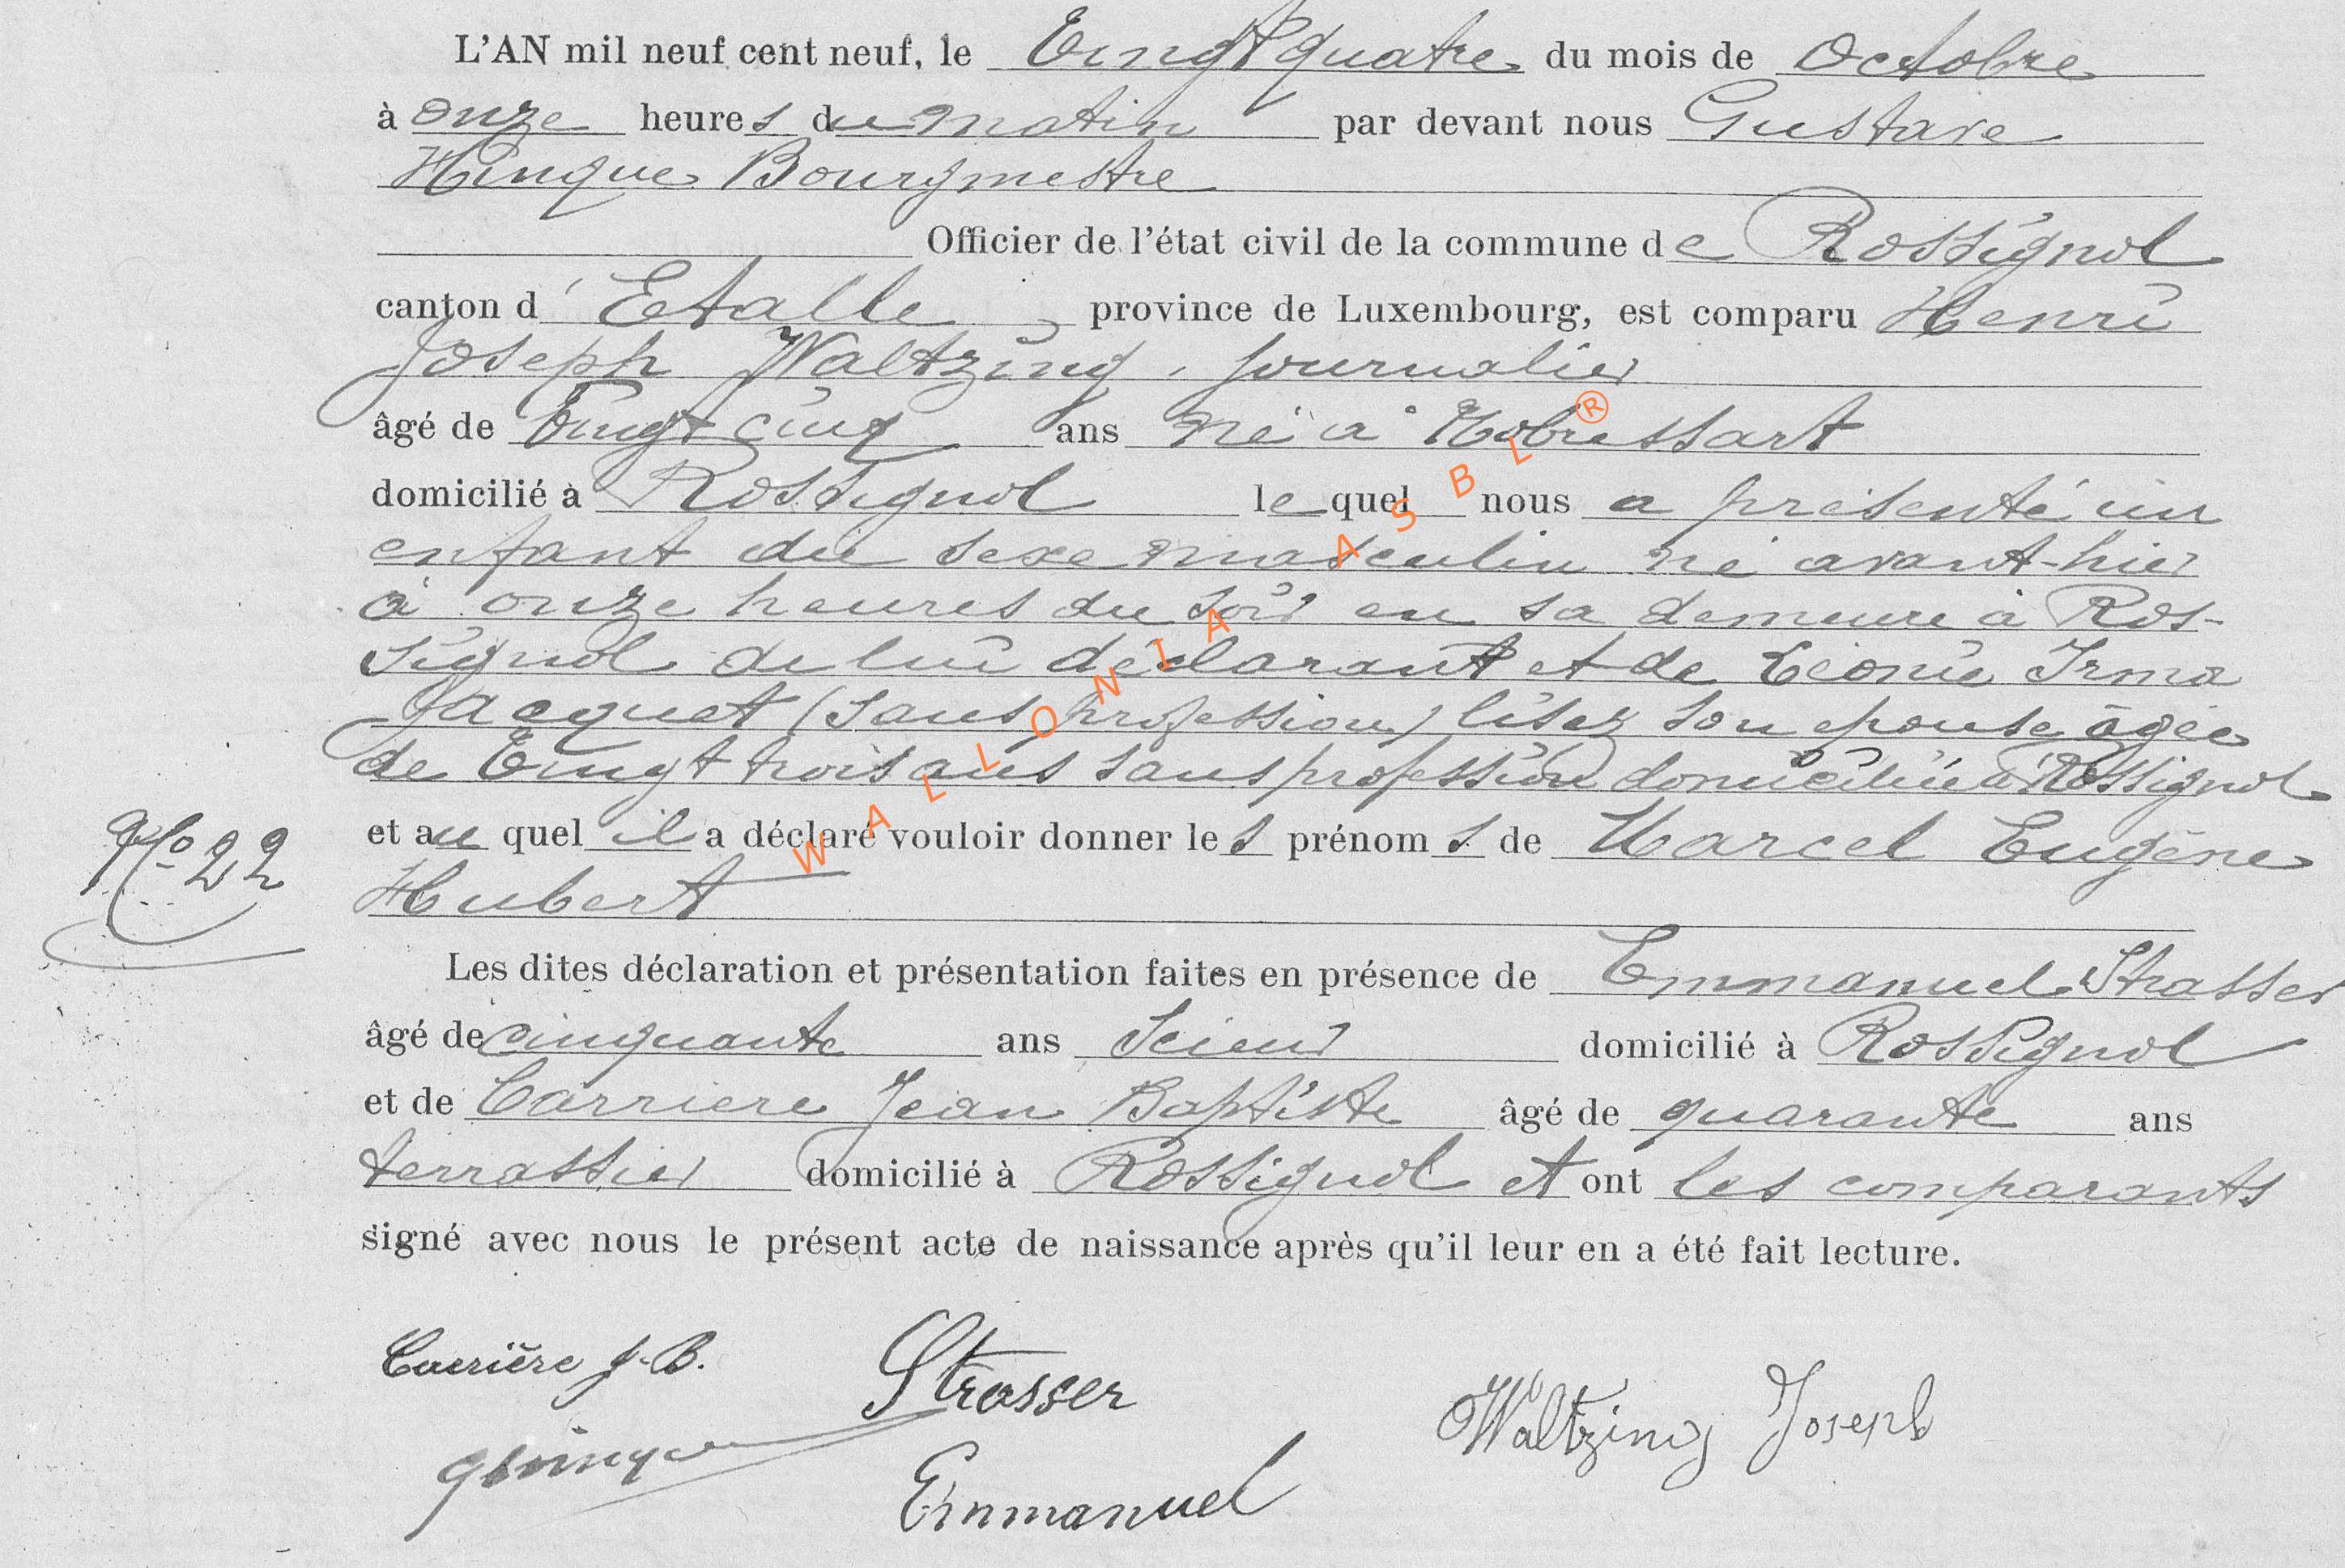 L'AN mil neuf cent neuf, le Vingt quatre du mois de Octobre
à onze heures du matin par devant nous Gustave
Hinque Bourgmestre
Officier de l'état civil de la commune de Rossignol
canton d'Etalle, province de Luxembourg, est comparu Henri
Joseph Waltzing, journalier
âgé de Vingt cinq ans né à Habressart
domicilié à Rossignol lequel nous a présenté un
enfant du sexe masculin né avant-hier
à onze heures du soir en sa demeure à Ros-
signol de lui déclarant et de Léonie Irma
Jacquet (sans profession) lisez son épouse âgée
de Vingt trois ans sans profession domiciliée à Rossignol
No 22
et au quel il a déclaré vouloir donner les prénoms de Marcel Eugène
Hubert
Les dites déclaration et présentation faites en présence de Emmanuel Strasser
âgé de cinquante ans Scieur domicilié à Rossignol
et de Carriere Jean Baptiste âgé de quarante ans
terrassier domicilié à Rossignol et ont les comparants
signé avec nous le présent acte de naissance après qu'il leur en a été fait lecture.
Carrière J.B. Strasser
Waltzing Joseph
Emmanuel
WALLONIA ASBL®